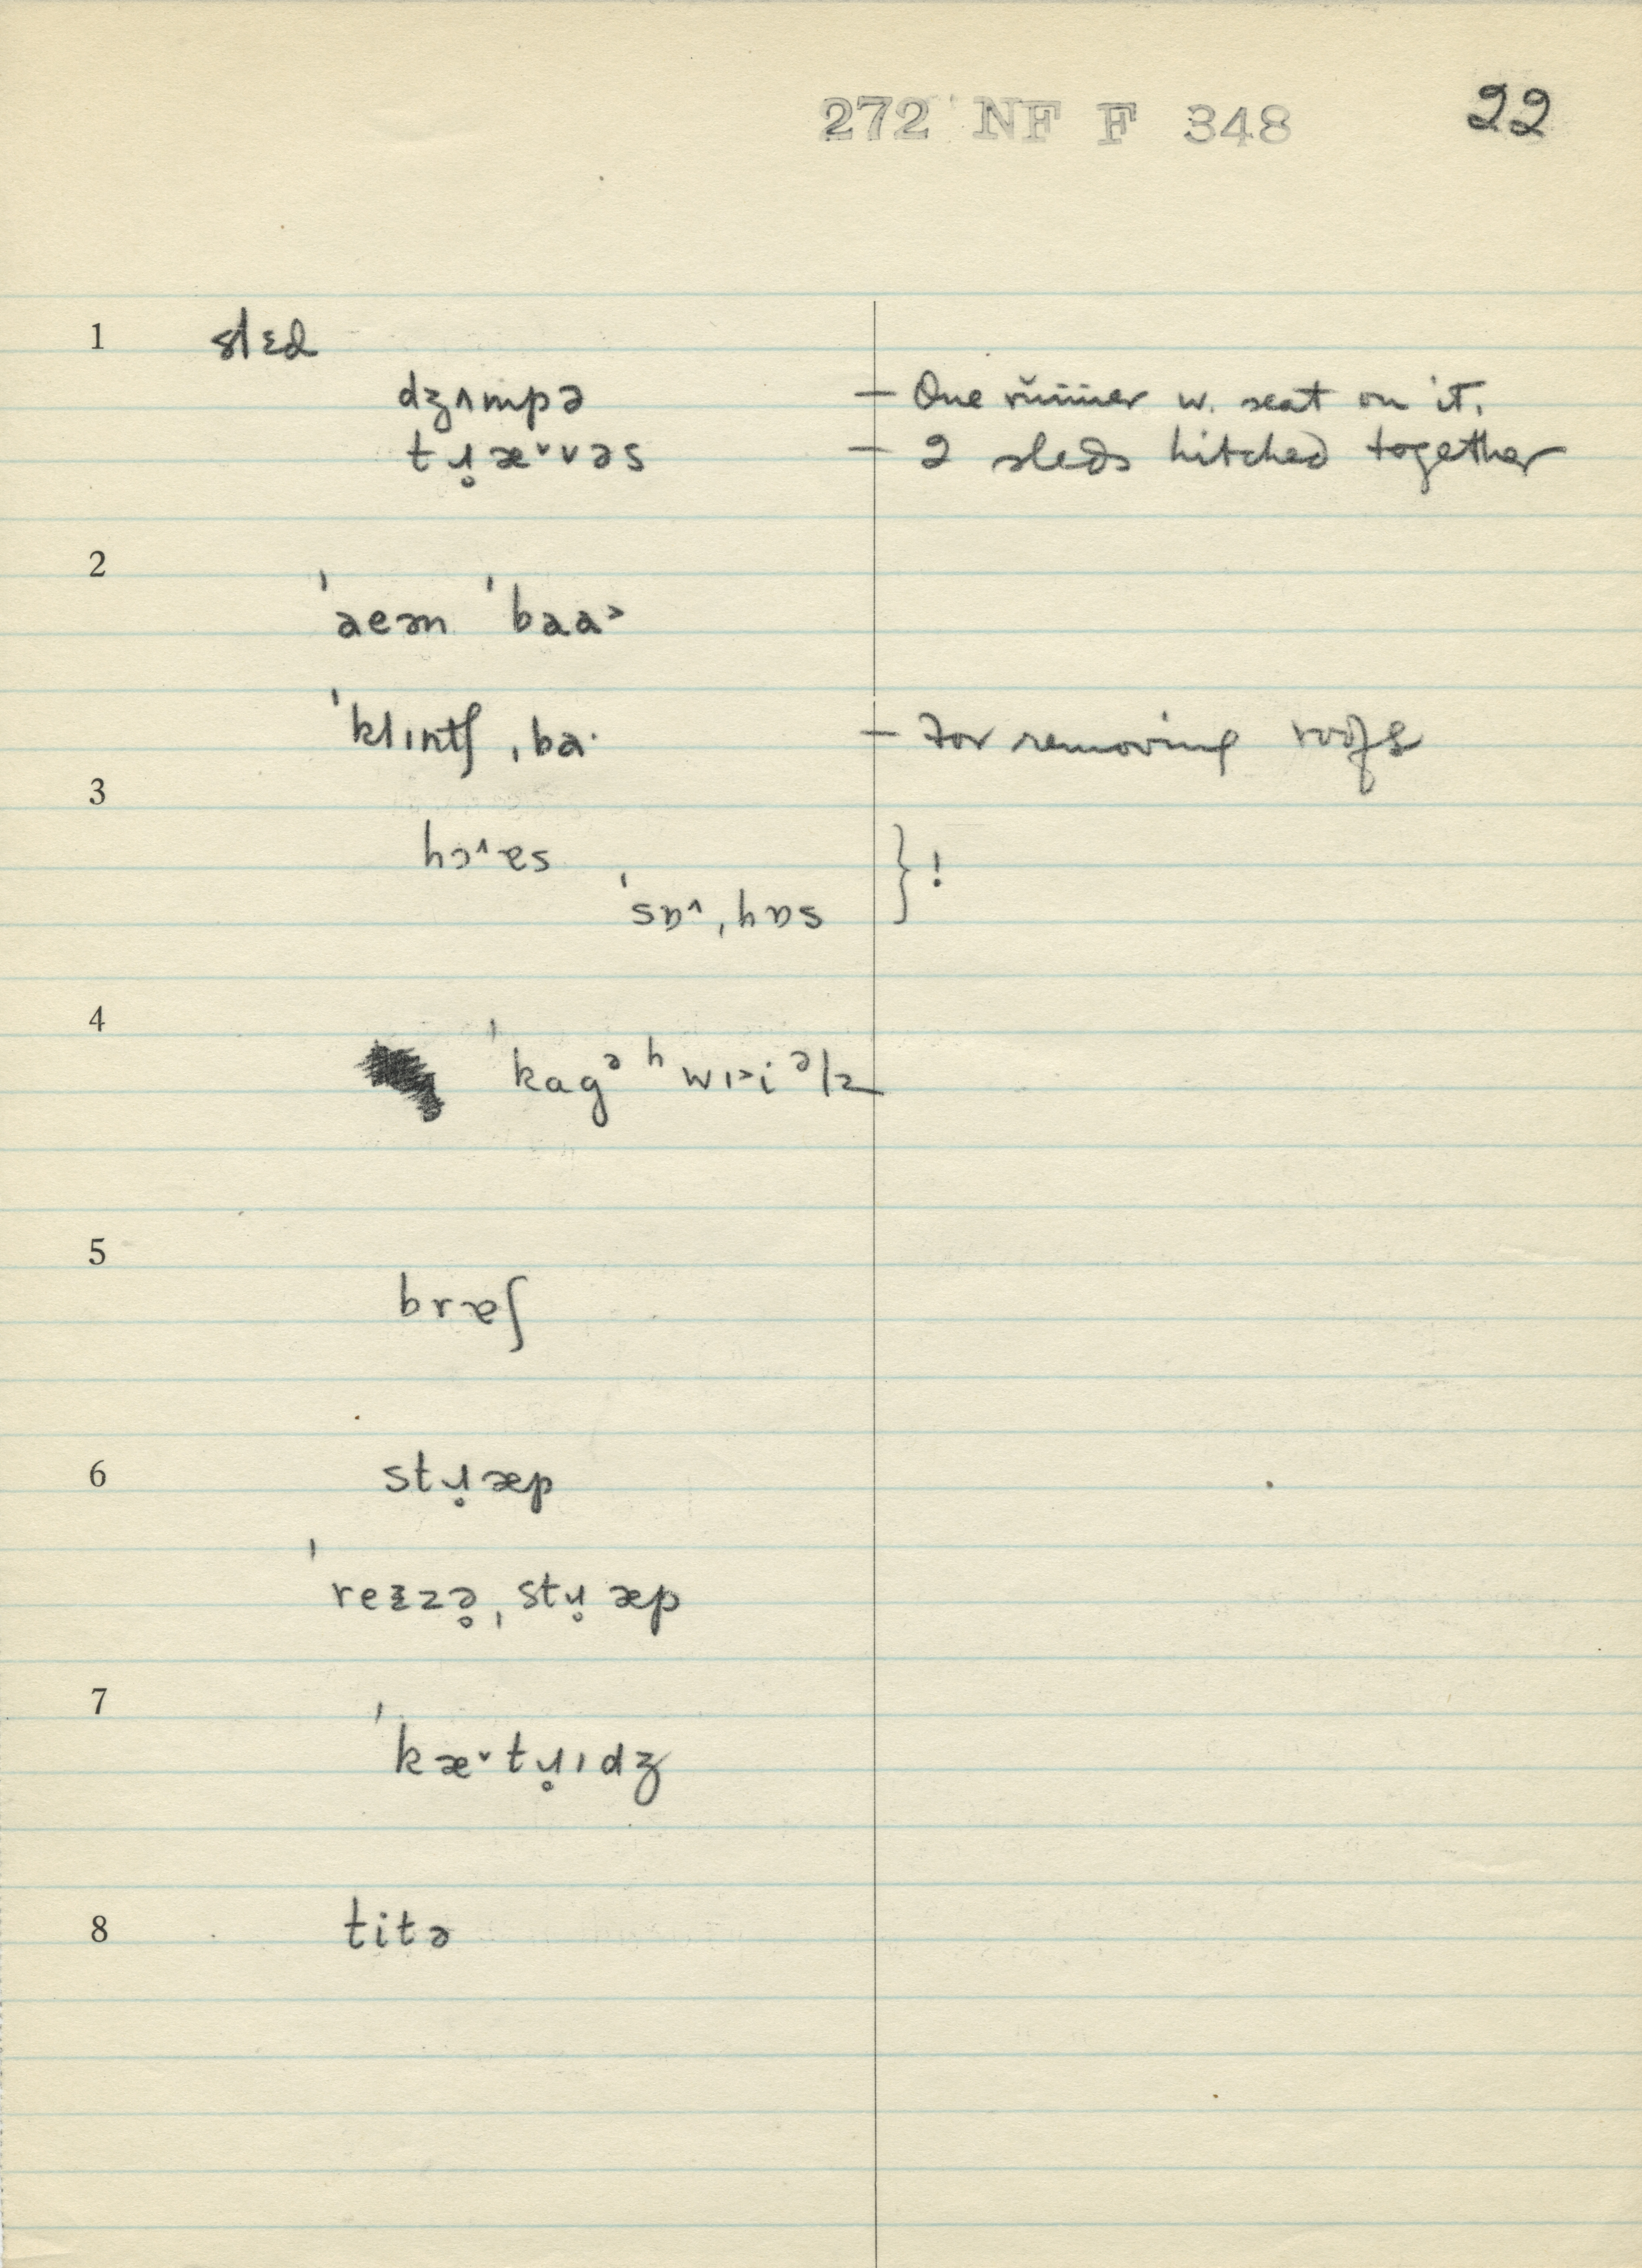 272 NF F 348 22
1 slɛd
dʒʌmpə — One runner w. seat on it.
tɹ̥æ˅vəs — 2 sleds hitched together
2
ˈaeən ˈbaa˃
ˈklɪntʃ ˌba· — For removing roofs
3
hɔ˄ɐs } !
ˈsɒ˄ˌhɒs
4
ˈkagᵊ ʰwɪ˃iᵊlz
5
bræʃ
6 stɹ̥æp
ˈreɪzə̥ˌstɹ̥æp
7
ˈkæ˅tɹ̥ɪdʒ
8 titə